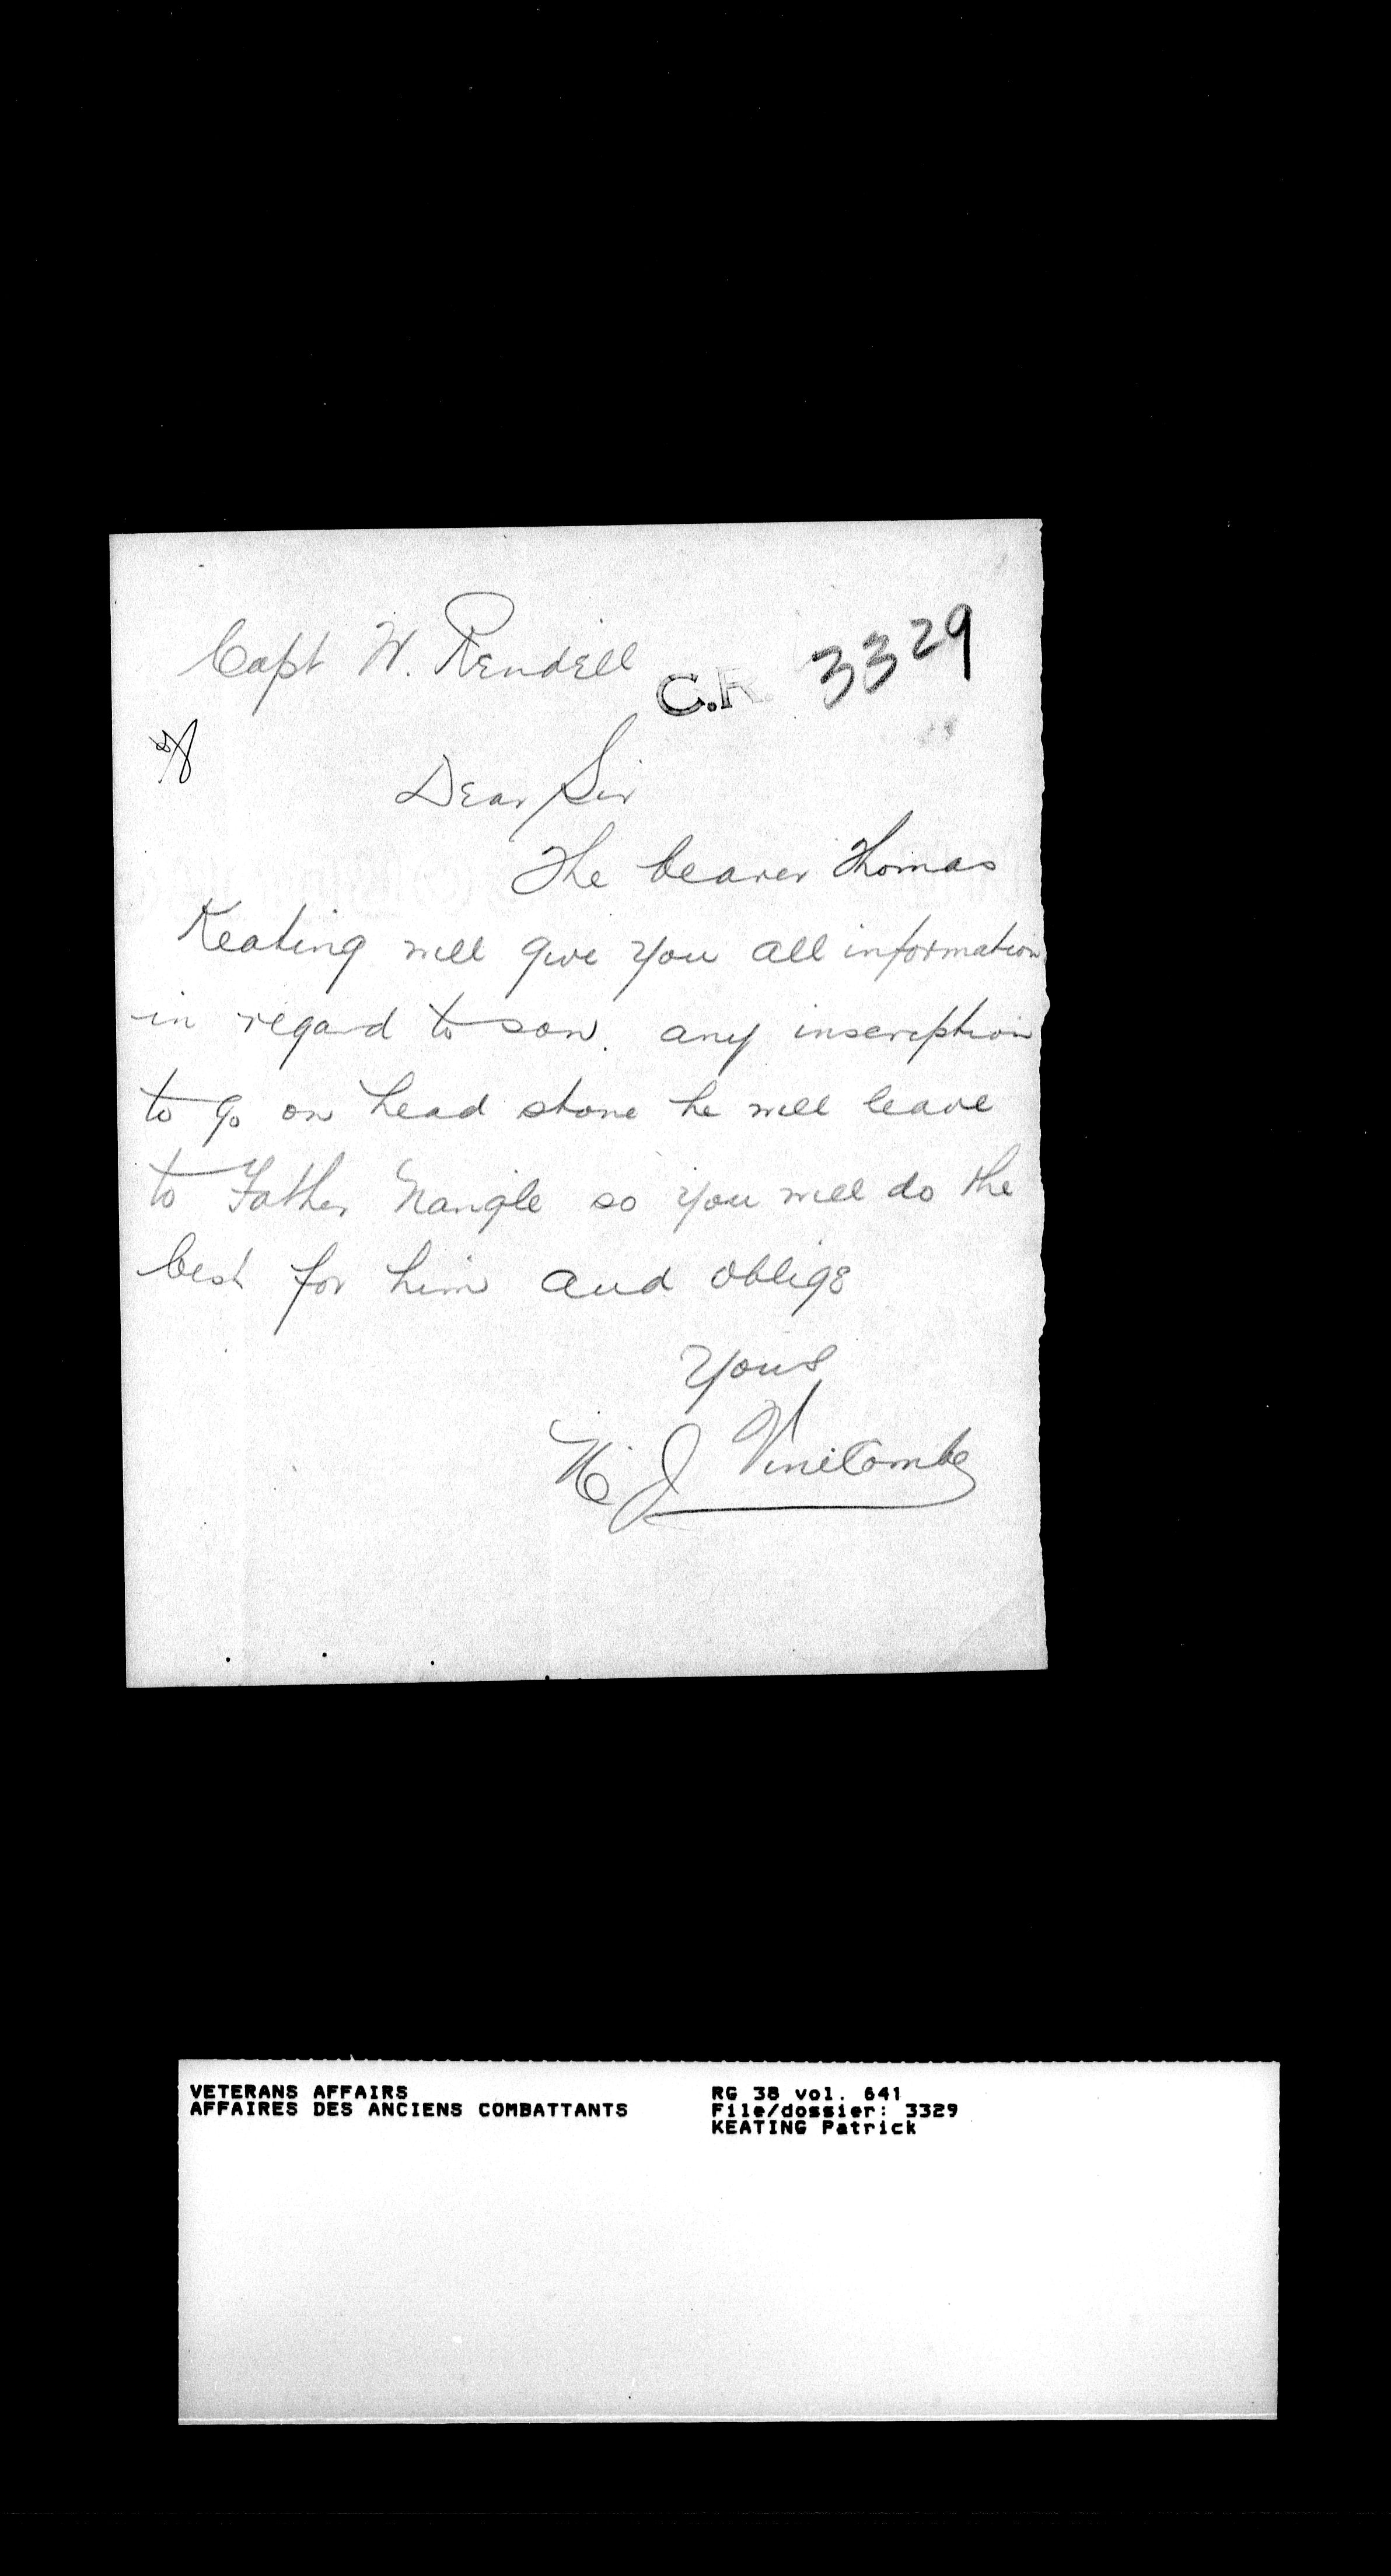 Capt W. Rendell
C.R. 3329
Dear Sir
The bearer Thomas
Keating will give you all information
in regard to son. any inscription
to go on head stone he will leave
to Father Nangle so you will do the
best for him and oblige
Yours
J Vinicombe
VETERANS AFFAIRS
AFFAIRES DES ANCIENS COMBATTANTS
RG 38 vol. 641
File/dossier: 3329
KEATING Patrick